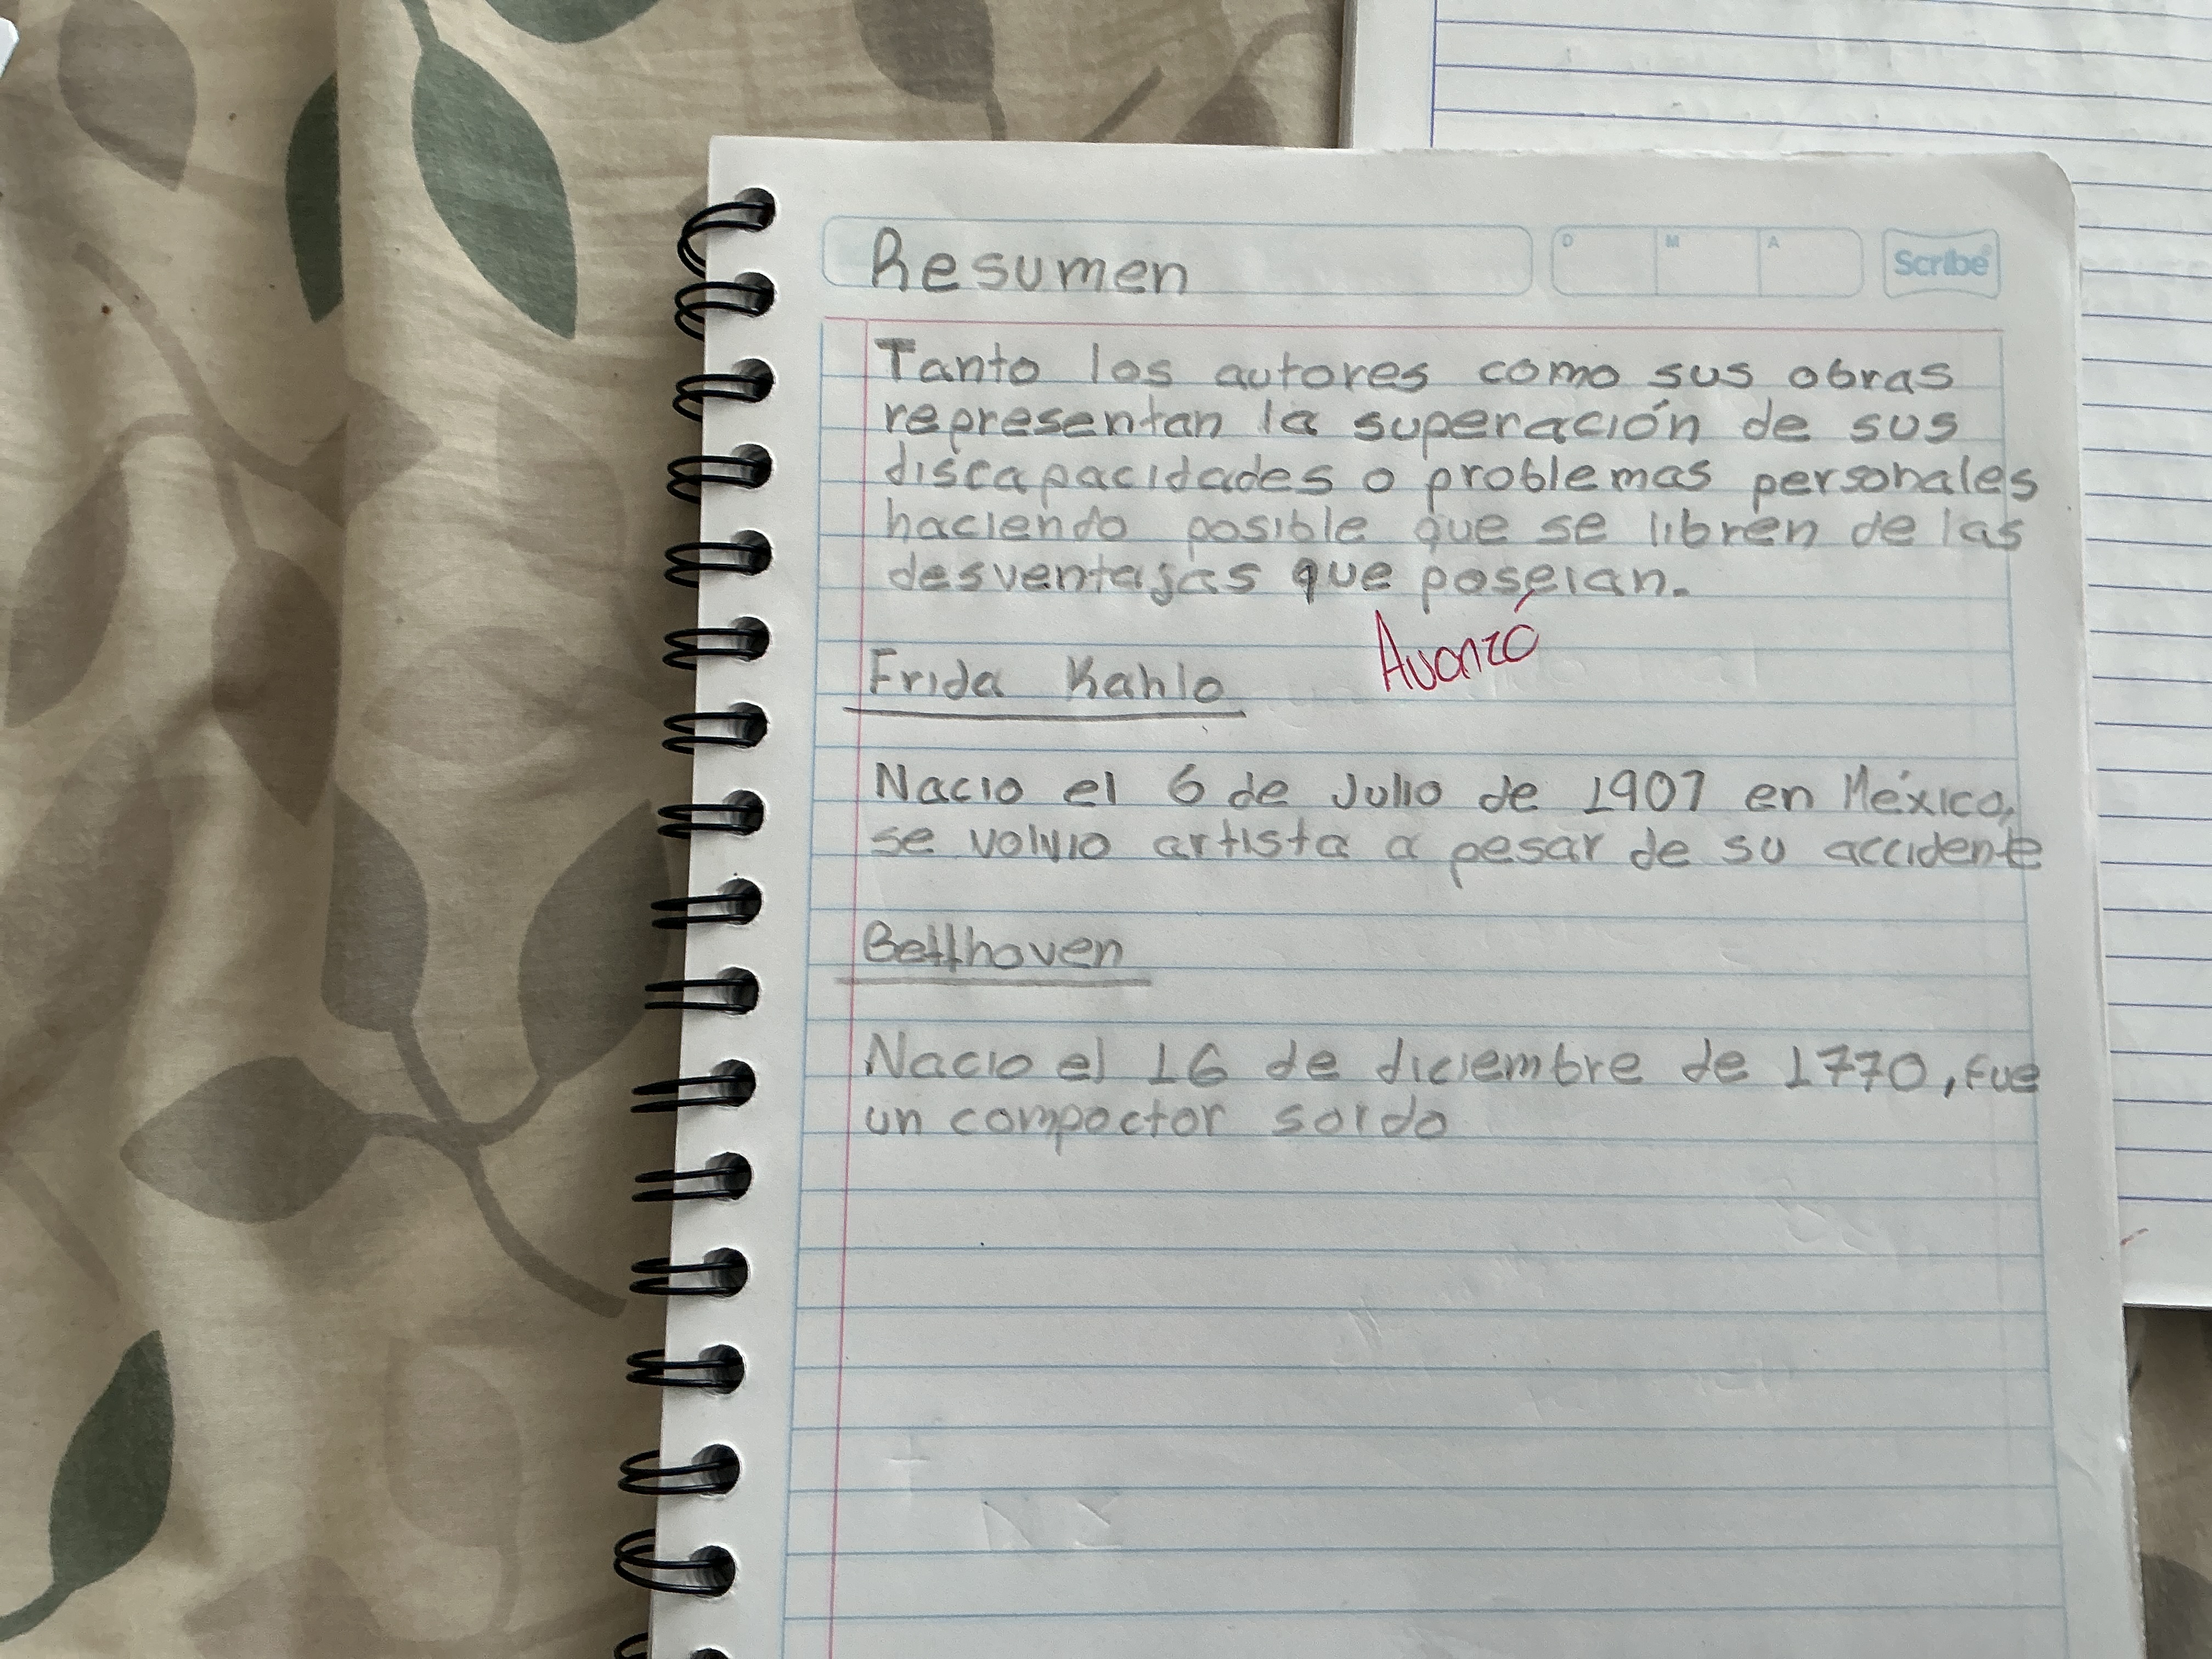 Resumen
D M A
Scribe
Tanto los autores como sus obras
representan la superación de sus
discapacidades o problemas personales
haciendo posible que se libren de las
desventajas que poseian.
Avanzó
Frida Kahlo
Nacio el 6 de Julio de 1907 en México,
se volvio artista a pesar de su accidente
Betthoven
Nacio el 16 de diciembre de 1770, fue
un compoctor sordo